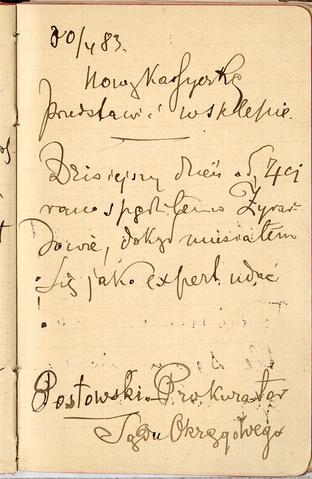 30/4 83.
Nową Kasyerkę
przedstawić w sklepie.
Dzisiejszy dzień od 7ej
rano spędziłem w Żyrar-
dowie, dokąd musiałem
się jako expert udać
!
Postowski Prokurator
Sądu Okręgowego